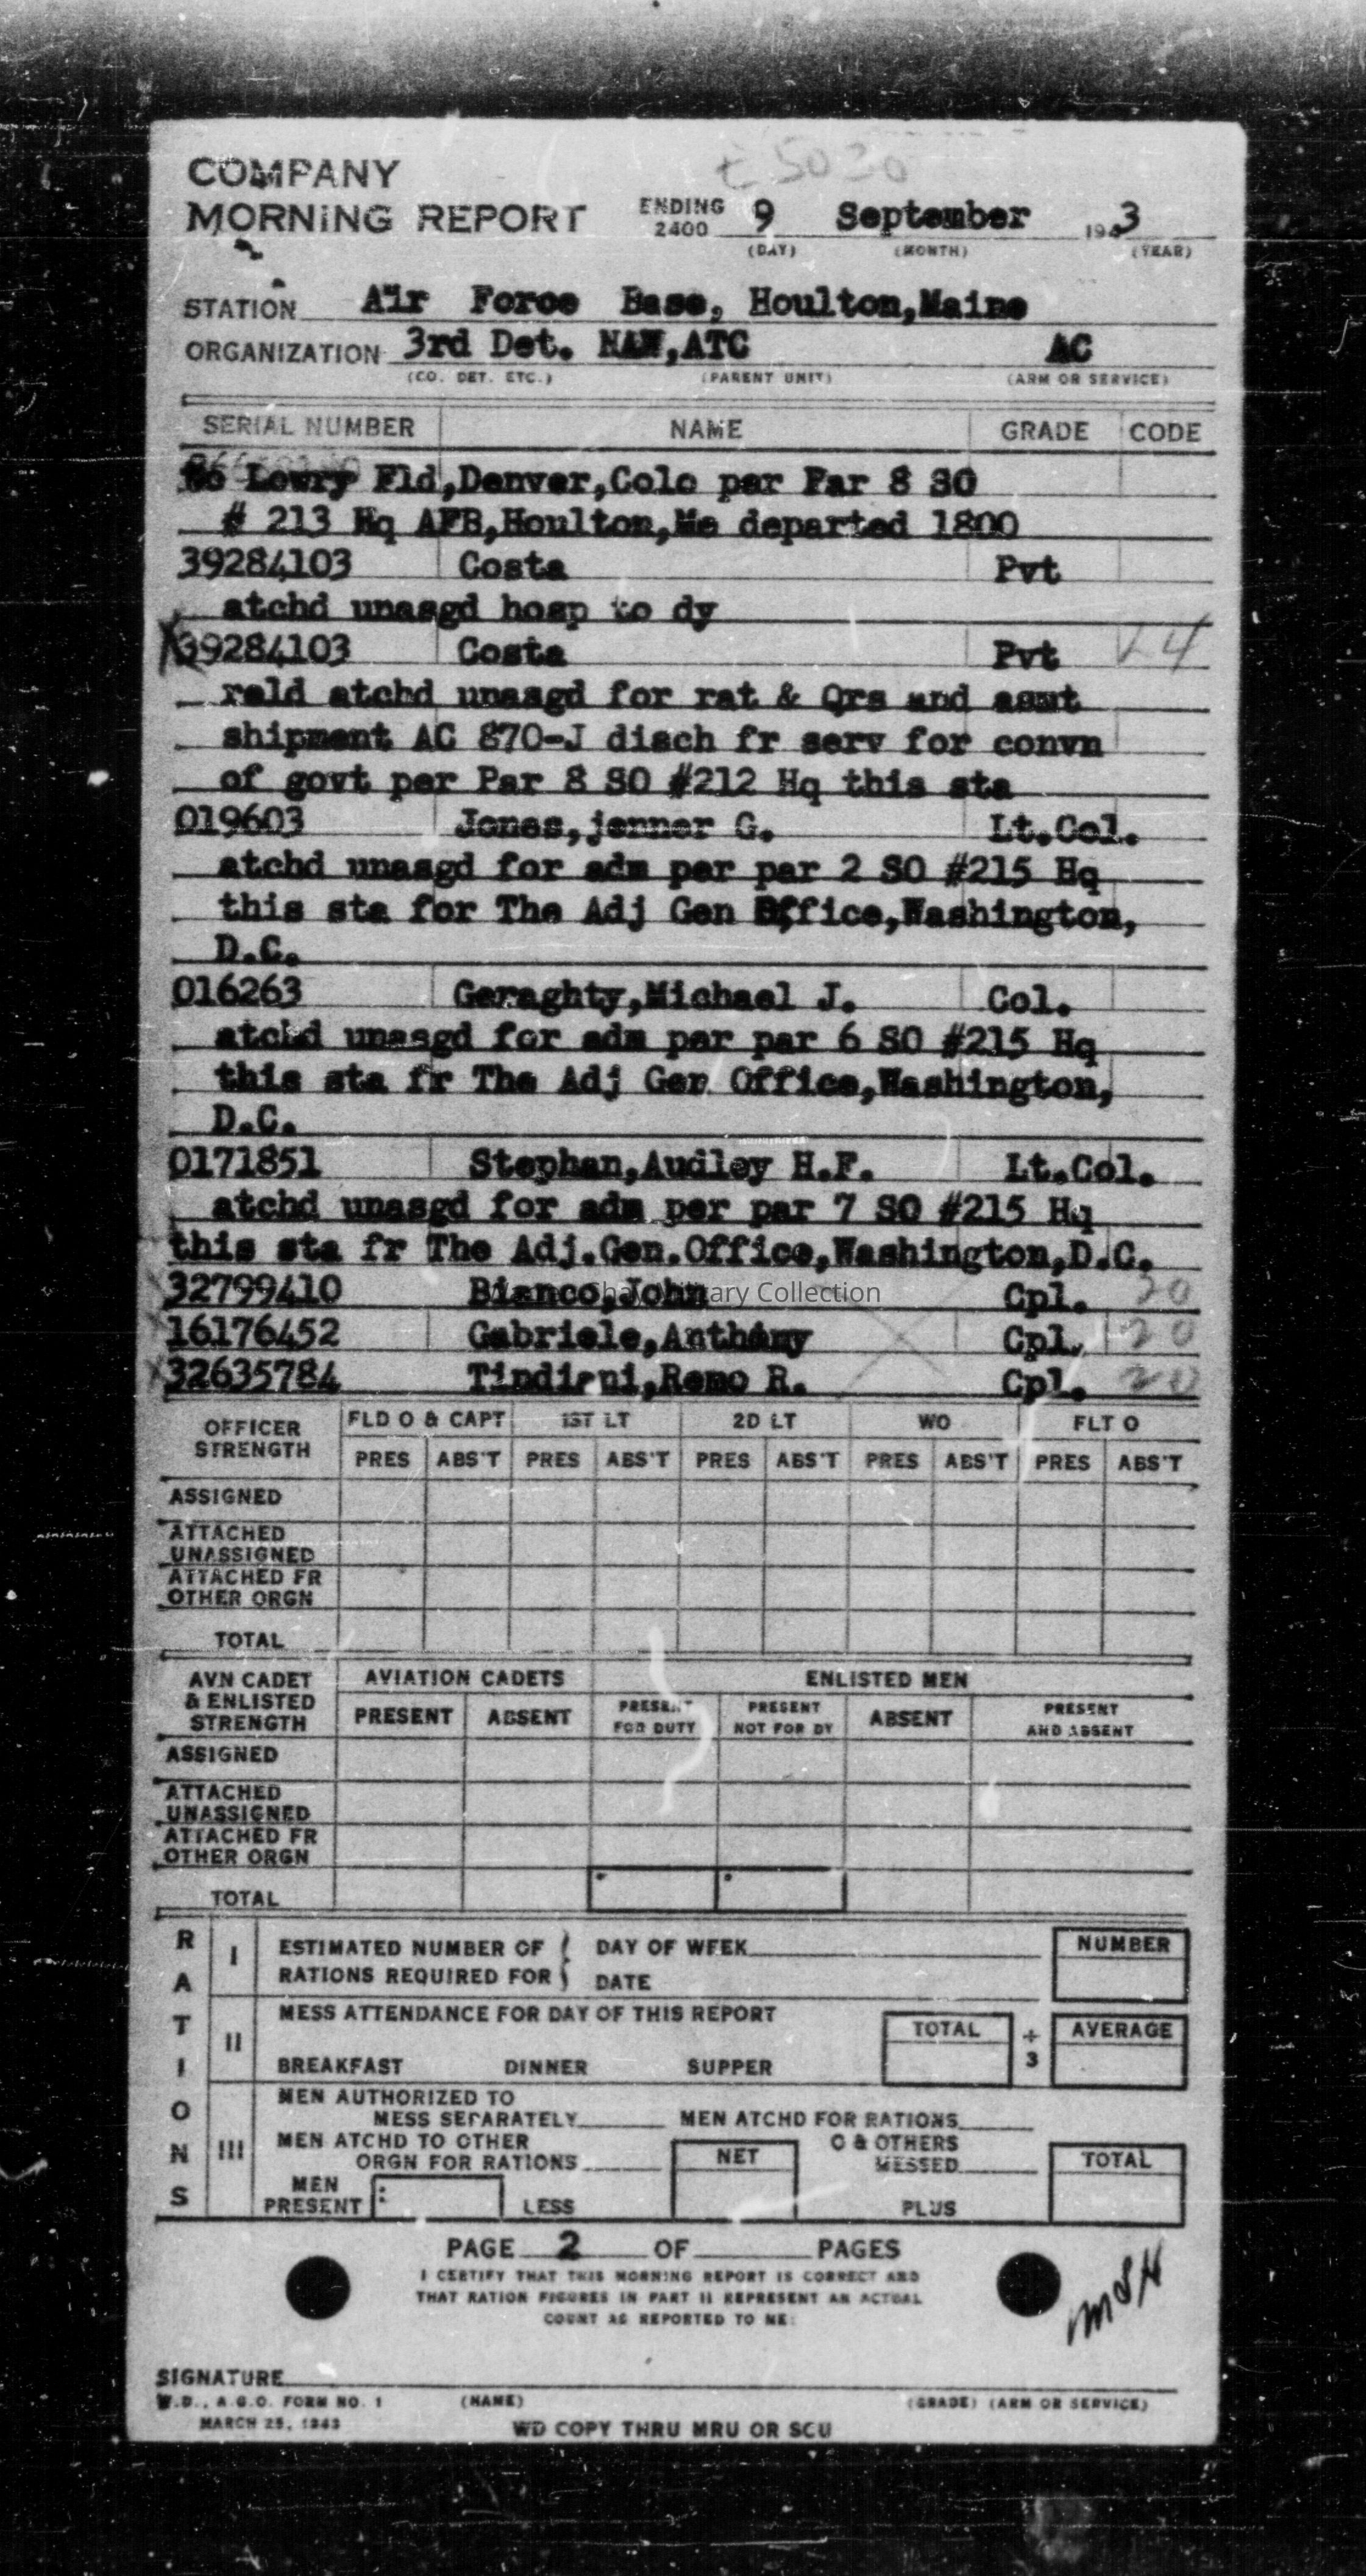 E 5030
COMPANY
MORNING REPORT ENDING 2400 9 September 1943
(DAY) (MONTH) (YEAR)
STATION Air Force Base, Houlton,Maine
ORGANIZATION 3rd Det. NAW,ATC AC
(CO. DET. ETC.) (PARENT UNIT) (ARM OR SERVICE)
SERIAL NUMBER NAME GRADE CODE
to Lowry Fld,Denver,Colo per Par 8 SO
# 213 Hq AFB,Houlton,Me departed 1800
39284103 Costa Pvt
atchd unasgd hosp to dy
39284103 Costa Pvt 24
reld atchd unasgd for rat & Qrs and asmt
shipment AC 870-J disch fr serv for convn
of govt per Par 8 SO #212 Hq this sta
019603 Jones,jenner G. Lt.Col.
atchd unasgd for adm per par 2 SO #215 Hq
this sta for The Adj Gen Office,Washington,
D.C.
016263 Geraghty,Michael J. Col.
atchd unasgd for adm per par 6 SO #215 Hq
this sta fr The Adj Gen Office,Washington,
D.C.
0171851 Stephan,Audley H.F. Lt.Col.
atchd unasgd for adm per par 7 SO #215 Hq
this sta fr The Adj.Gen.Office,Washington,D.C.
32799410 Bianco,John Cpl. 20
16176452 Gabriele,Anthony Cpl. 20
32635784 Tindiani,Remo R. Cpl. 20
Military Collection
OFFICER STRENGTH FLD O & CAPT 1ST LT 2D LT WO FLT O
PRES ABS'T PRES ABS'T PRES ABS'T PRES ABS'T PRES ABS'T
ASSIGNED
ATTACHED
UNASSIGNED
ATTACHED FR
OTHER ORGN
TOTAL
AVN CADET & ENLISTED STRENGTH AVIATION CADETS ENLISTED MEN
PRESENT ABSENT PRESENT FOR DUTY PRESENT NOT FOR DY ABSENT PRESENT AND ABSENT
ASSIGNED
ATTACHED
UNASSIGNED
ATTACHED FR
OTHER ORGN
TOTAL
RATIONS
I ESTIMATED NUMBER OF DAY OF WEEK NUMBER
RATIONS REQUIRED FOR DATE
II MESS ATTENDANCE FOR DAY OF THIS REPORT TOTAL ÷ 3 AVERAGE
BREAKFAST DINNER SUPPER
III MEN AUTHORIZED TO
MESS SEPARATELY MEN ATCHD FOR RATIONS
MEN ATCHD TO OTHER NET O & OTHERS TOTAL
ORGN FOR RATIONS MESSED
MEN PRESENT LESS PLUS
PAGE 2 OF PAGES
I CERTIFY THAT THIS MORNING REPORT IS CORRECT AND
THAT RATION FIGURES IN PART II REPRESENT AN ACTUAL
COUNT AS REPORTED TO ME:
SIGNATURE
W.D., A.G.O. FORM NO. 1 (NAME) (GRADE) (ARM OR SERVICE)
MARCH 25, 1943 WD COPY THRU MRU OR SCU